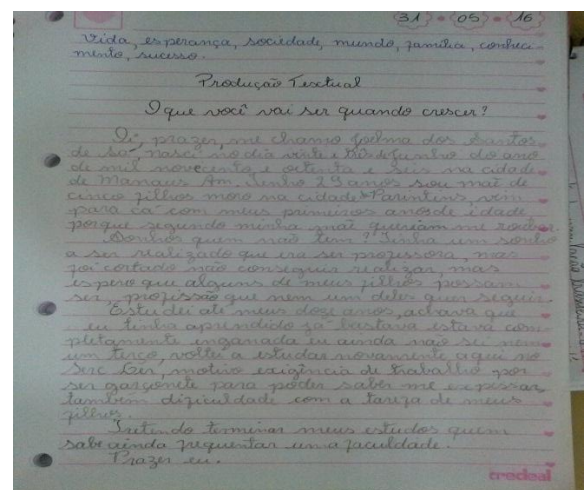 31 - 05 - 16
Vida, esperança, sociedade, mundo, família, conheci-
mento, sucesso.
Produção Textual
O que você vai ser quando crescer?
Oi, prazer, me chamo Joelma dos Santos
de Sá, nasci no dia vinte e três de junho do ano
de mil novecento e oitenta e seis na cidade
de Manaus Am. Tenho 29 anos sou mãe de
cinco filhos moro na cidade Parintins, vim
para cá com meus primeiros anos de idade,
porque segundo minha mãe queriam me roubar.
Sonhos quem não tem? Tinha um sonho
a ser realizado que era ser professora, mas
foi cortado não conseguir realizar, mas
espero que alguns de meus filhos possam
ser, profissão que nem um deles quer seguir.
Estudei até meus doze anos, achava que
eu tinha aprendido já bastava estava com-
pletamente enganada eu ainda não sei nem
um terço, voltei a estudar novamente aqui no
Sesc Ler, motivo exigência de trabalho por
ser garçonete para poder saber me expessar,
também dificuldade com a tarefa de meus
filhos.
Pretendo terminar meus estudos quem
sabe ainda frequentar uma faculdade.
Prazer eu.
credeal